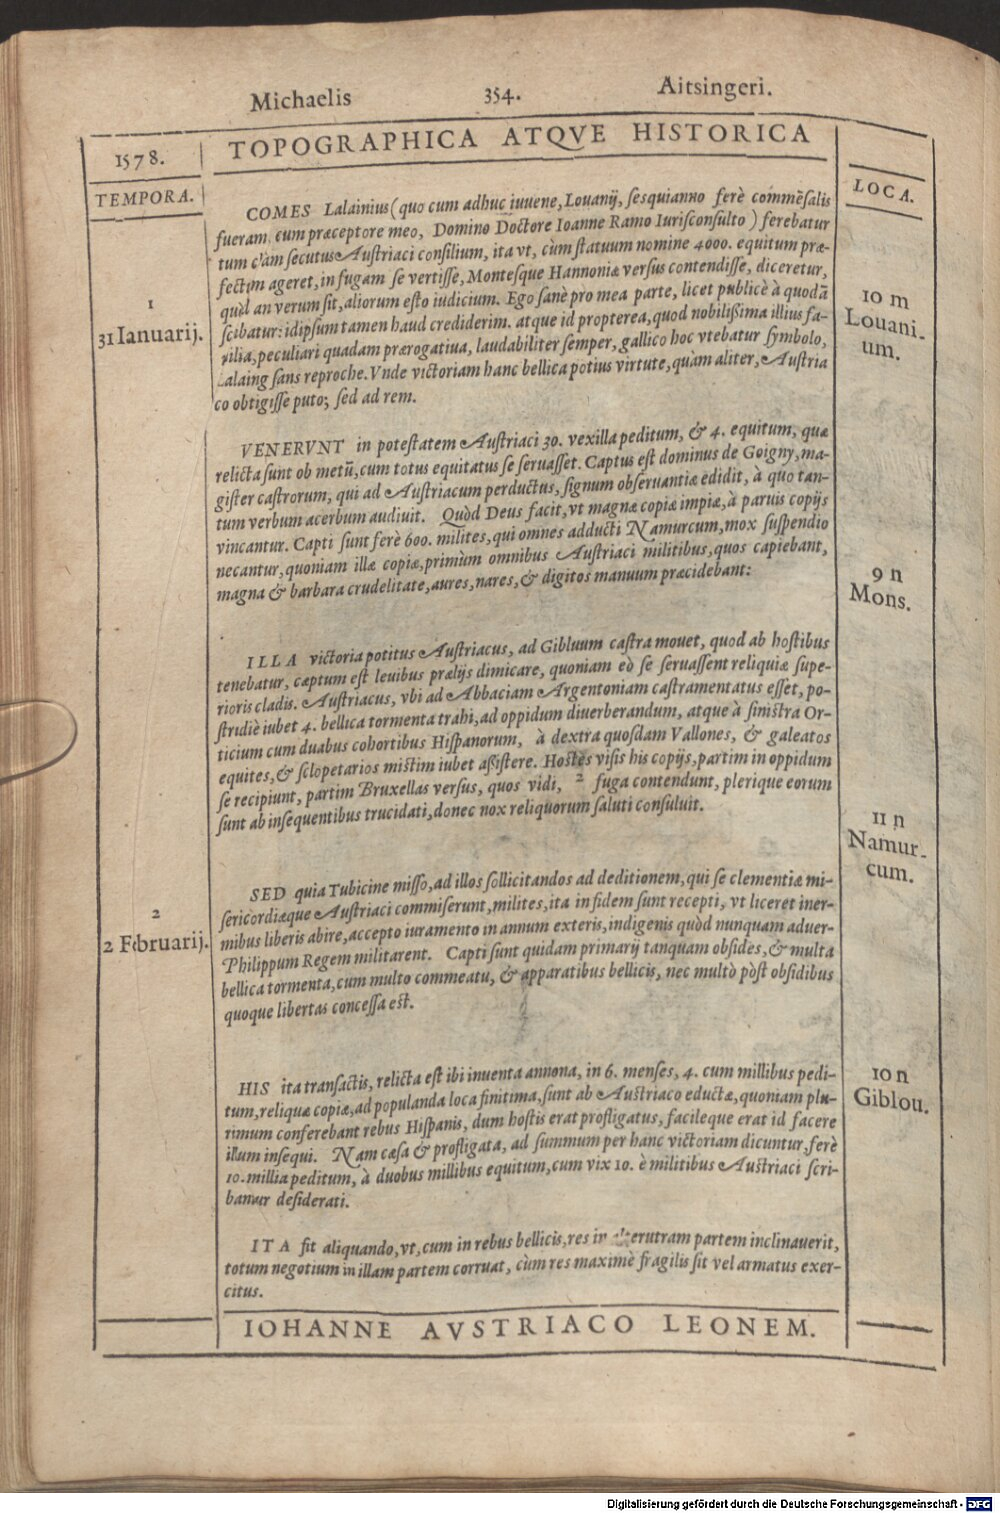 Michaelis 354. Aitsingeri.
1578. TOPOGRAPHICA ATQVE HISTORICA
TEMPORA. LOCA.
COMES Lalainius (quo cum adhuc iuuene, Louanij, sesquianno ferè commēsalis
fueram, cum præceptore meo, Domino Doctore Ioanne Ramo Iurisconsulto) ferebatur
tum clàm secutus Austriaci consilium, ita vt, cùm statuum nomine 4000. equitum præ-
fectim ageret, in fugam se vertisse, Montesque Hannoniæ versus contendisse, diceretur,
quòd an verum sit, aliorum esto iudicium. Ego sanè pro mea parte, licet publicè à quodā
scibatur: idipsum tamen haud crediderim. atque id propterea, quod nobilißima illius fa-
milia, peculiari quadam prærogatiua, laudabiliter semper, gallico hoc vtebatur symbolo,
Lalaing sans reproche. Vnde victoriam hanc bellica potius virtute, quàm aliter, Austria
co obtigisse puto; sed ad rem.
1
31 Ianuarij.
10 m
Louani-
um.
VENERVNT in potestatem Austriaci 30. vexilla peditum, & 4. equitum, quæ
relicta sunt ob metū, cum totus equitatus se seruasset. Captus est dominus de Goigny, ma-
gister castrorum, qui ad Austriacum perductus, signum obseruantiæ edidit, à quo tan-
tum verbum acerbum audiuit. Quòd Deus facit, vt magnæ copiæ impiæ, à paruis copijs
vincantur. Capti sunt ferè 600. milites, qui omnes adducti Namurcum, mox suspendio
necantur, quoniam illæ copiæ, primùm omnibus Austriaci militibus, quos capiebant,
magna & barbara crudelitate, aures, nares, & digitos manuum præcidebant:
9 n
Mons.
ILLA victoria potitus Austriacus, ad Gibluum castra mouet, quod ab hostibus
tenebatur, captum est leuibus prælijs dimicare, quoniam eò se seruassent reliquiæ supe-
rioris cladis. Austriacus, vbi ad Abbaciam Argentoniam castramentatus esset, po-
stridiè iubet 4. bellica tormenta trahi, ad oppidum diuerberandum, atque à sinistra Or-
ticium cum duabus cohortibus Hispanorum, à dextra quosdam Vallones, & galeatos
equites, & sclopetarios mistim iubet aßistere. Hostes visis his copijs, partim in oppidum
se recipiunt, partim Bruxellas versus, quos vidi, 2 fuga contendunt, plerique eorum
sunt ab insequentibus trucidati, donec nox reliquorum saluti consuluit.
11 n
Namur-
cum.
SED quia Tubicine misso, ad illos sollicitandos ad deditionem, qui se clementiæ mi-
sericordiæque Austriaci commiserunt, milites, ita in fidem sunt recepti, vt liceret iner-
mibus liberis abire, accepto iuramento in annum exteris, indigenis quòd nunquam aduer-
Philippum Regem militarent. Capti sunt quidam primarij tanquam obsides, & multa
bellica tormenta, cum multo commeatu, & apparatibus bellicis, nec multò pòst obsidibus
quoque libertas concessa est.
2
2 Februarij.
HIS ita transactis, relicta est ibi inuenta annona, in 6. menses, 4. cum millibus pedi-
tum, reliquæ copiæ, ad populanda loca finitima, sunt ab Austriaco eductæ, quoniam plu-
rimum conferebant rebus Hispanis, dum hostis erat profligatus, facileque erat id facere
illum insequi. Nam cæsa & profligata, ad summum per hanc victoriam dicuntur, ferè
10. millia peditum, à duobus millibus equitum, cum vix 10. è militibus Austriaci scri-
bantur desiderati.
10 n
Giblou.
ITA fit aliquando, vt, cum in rebus bellicis, res in alterutram partem inclinauerit,
totum negotium in illam partem corruat, cùm res maximè fragilis sit vel armatus exer-
citus.
IOHANNE AVSTRIACO LEONEM.
Digitalisierung gefördert durch die Deutsche Forschungsgemeinschaft - DFG